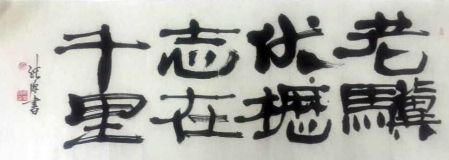 老驥
伏櫪
志在
千里
書